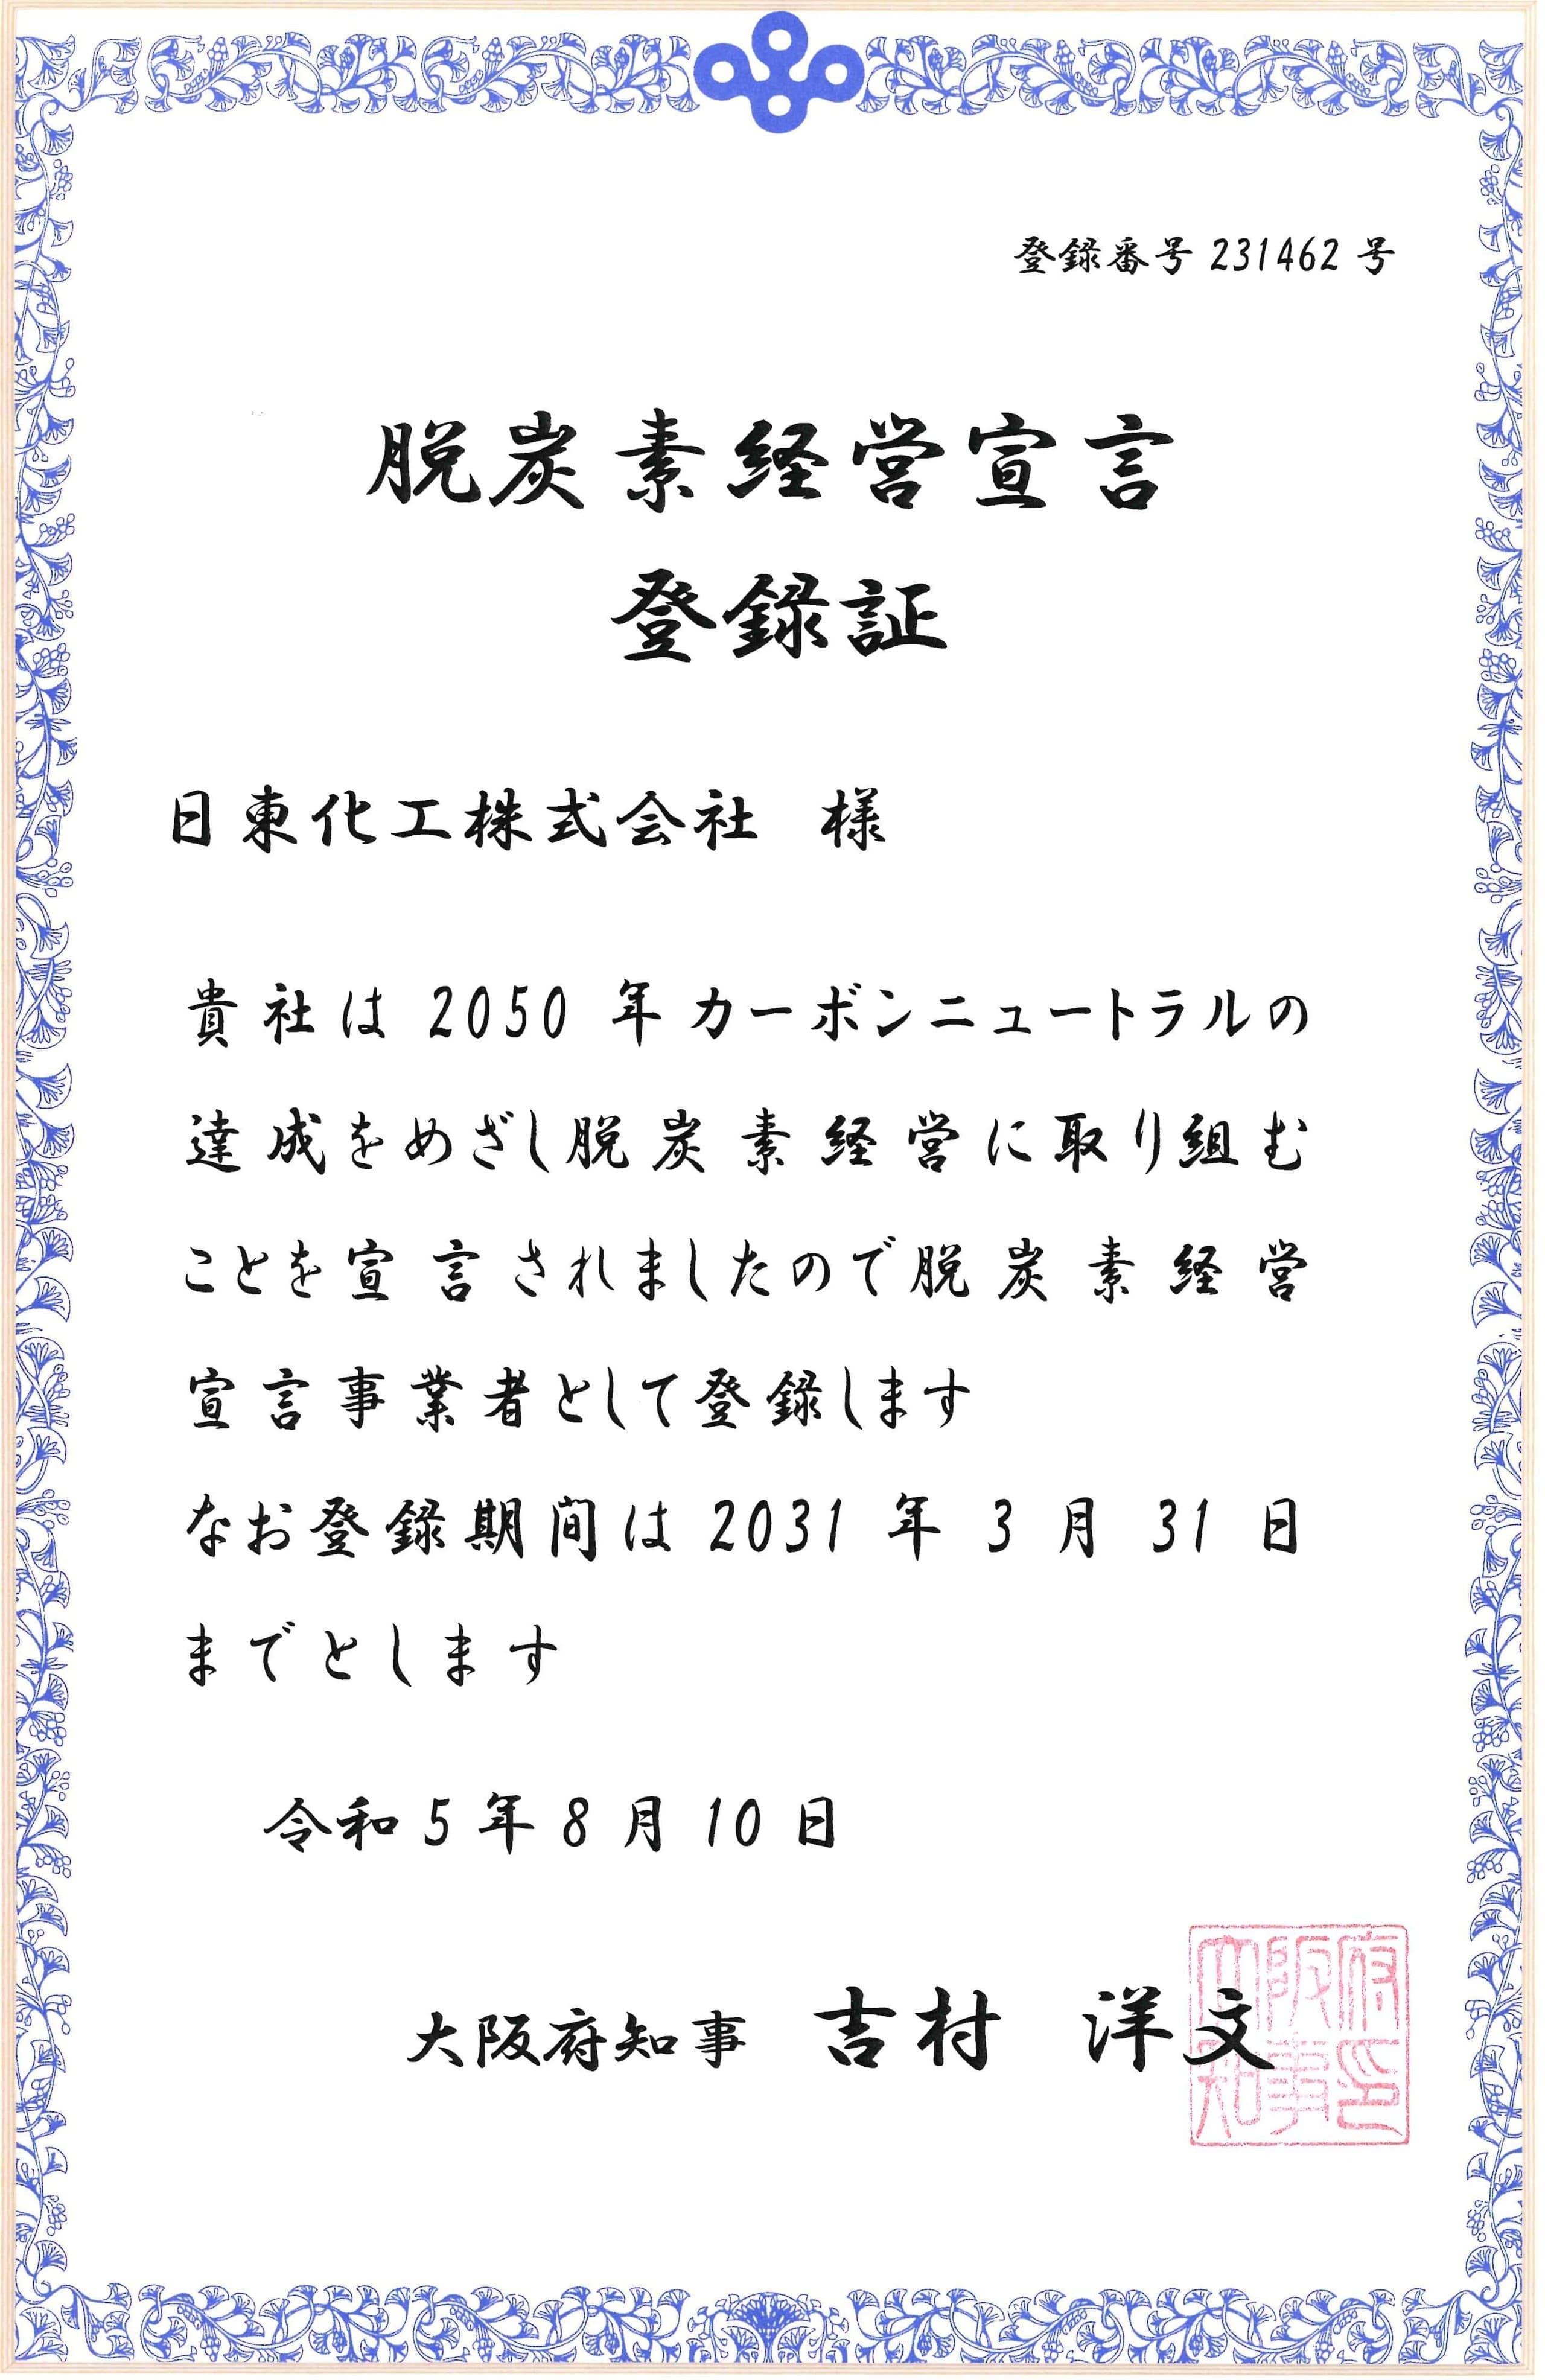 登録番号 231462 号
脱炭素経営宣言
登録証
日東化工株式会社 様
貴社は 2050 年カーボンニュートラルの
達成をめざし脱炭素経営に取り組む
ことを宣言されましたので脱炭素経営
宣言事業者として登録します
なお登録期間は 2031 年 3 月 31 日
までとします
令和 5 年 8 月 10 日
大阪府知事 吉村 洋文
大阪府
知事印